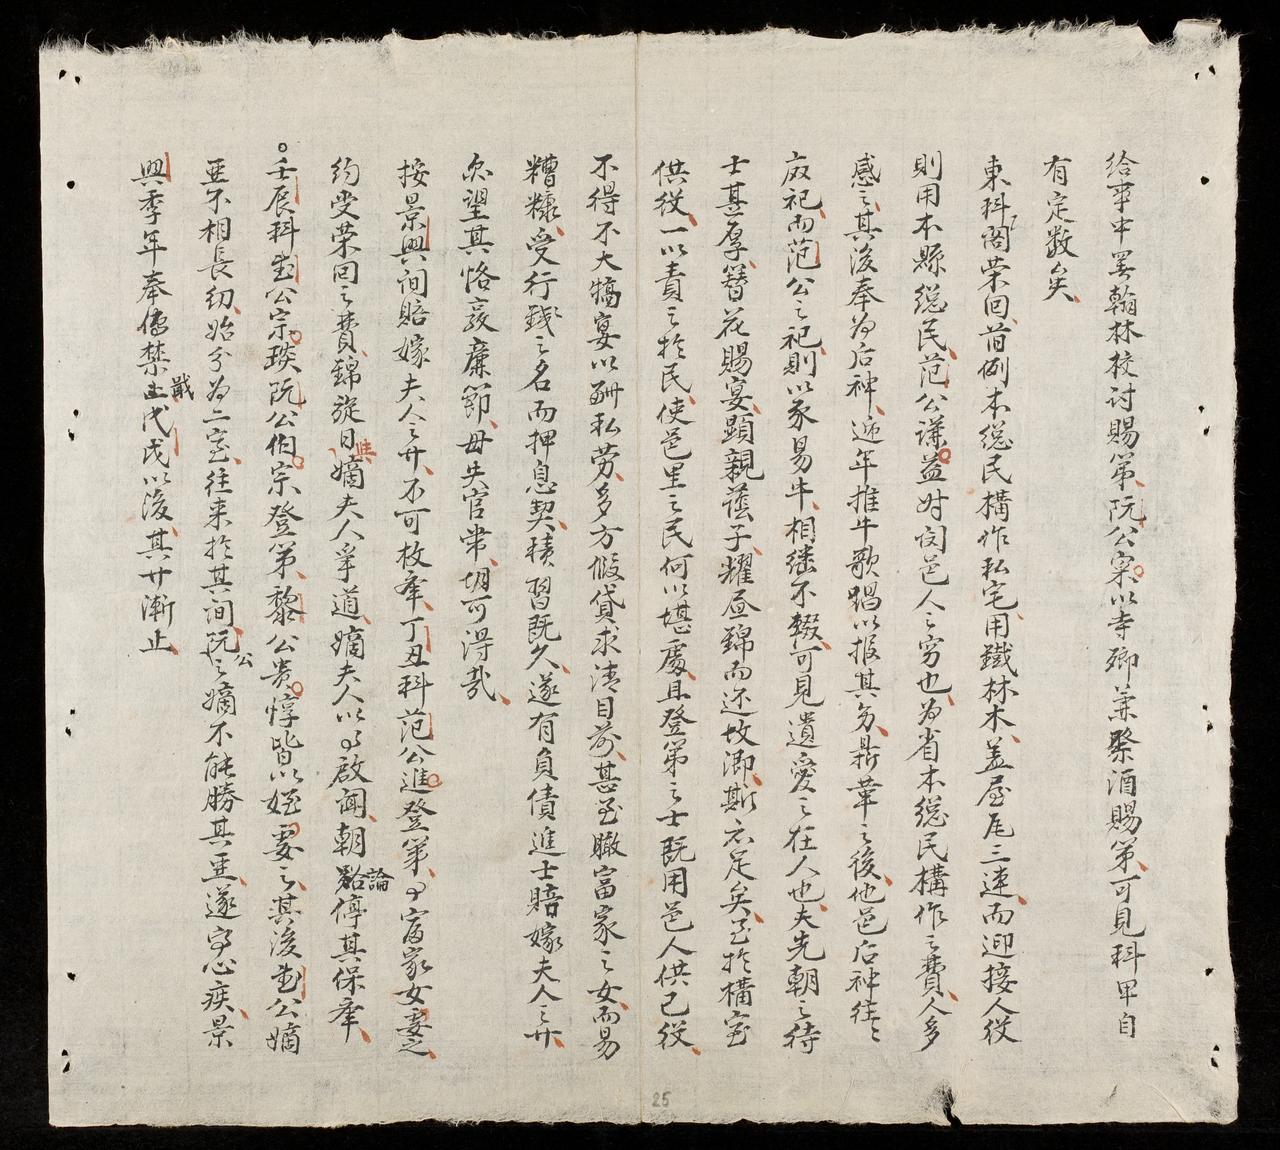 給事中兼翰林校討賜第阮公寀以寺卿兼祭酒賜第可見科甲自
有定数矣
東科閣荣回昔例本総民構作私宅用鐵林木盖屋瓦三連而迎接人従
則用本縣総民范公謙益时闵邑人之穷也为省本総民構作之費人多
感之其後奉为后神逓年推牛歌唱以报其労鼎革之後他邑后神往々
廃祀而范公之祀則以豕易牛相继不輟可見遺愛之在人也夫先朝之待
士甚厚簪花賜宴顕親蔭子耀昼錦而还故郷斯亦足矣至扵構室
供役一以責之扵民使邑里之民何以堪處且登第之士既用邑人供已役
不得不大犒宴以酧私劳多方假貸求済目前甚至瞰富家之女而易
糟糠受行錢之名而押息契積習既久遂有負債進士賠嫁夫人之廾
欲望其恪亥廉節毋失官常胡可得哉
按景興间賠嫁夫人之廾不可枚牽丁丑科范公進登第富家女妻之
約受荣回之費錦旋日嫡夫人爭道嫡夫人以啟闻朝論停其保牽
壬辰科武公宗琰阮公伯宗登第黎公贵惇皆以姪妻之其後武公嫡
亜不相長幼始分为二室往来扵其间阮公之嫡不能勝其亜遂字心疾景
興季年奉傳禁止戊戌以後其廾漸止
25